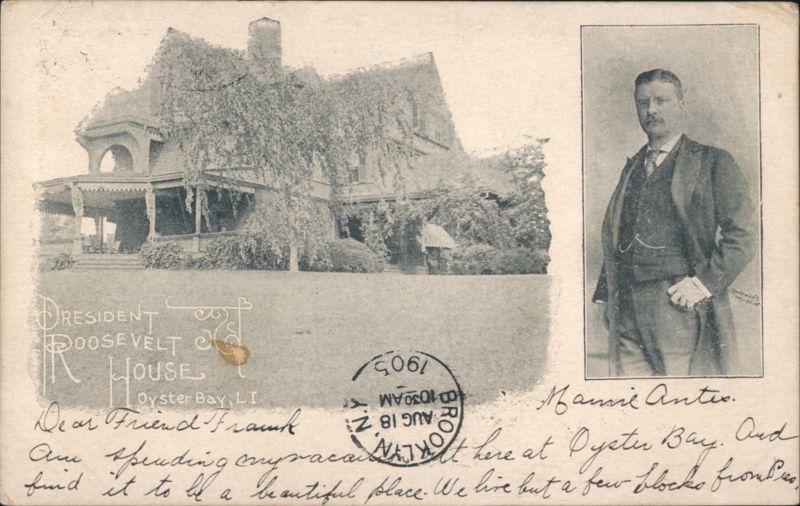 PRESIDENT
ROOSEVELT
HOUSE
OYSTER BAY, L.I.
BROOKLYN, N.Y.
AUG 18
10 30 AM
1905
Mamie Antes.
Dear Friend Frank
Am spending my vacation out here at Oyster Bay. And
find it to be a beautiful place. We live but a few blocks from Pres,